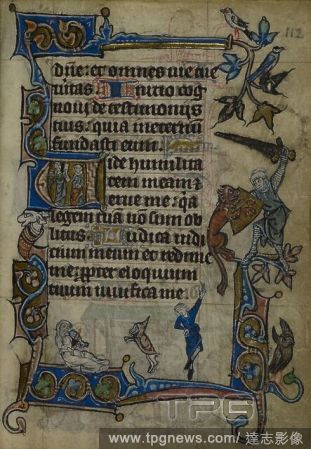 112
dñe: et omnes uie tue
ueritas Initio cog
noui de testimoniis
tuis: quia in eternum
fundasti ea
Vide humilita
tem meam et
eripe me: quia
legem tuam non sum ob
litus Iudica iudi
cium meum et redime
me: propter eloquium
tuum uiuifica me
TPG
www.tpgnews.com/達志影像